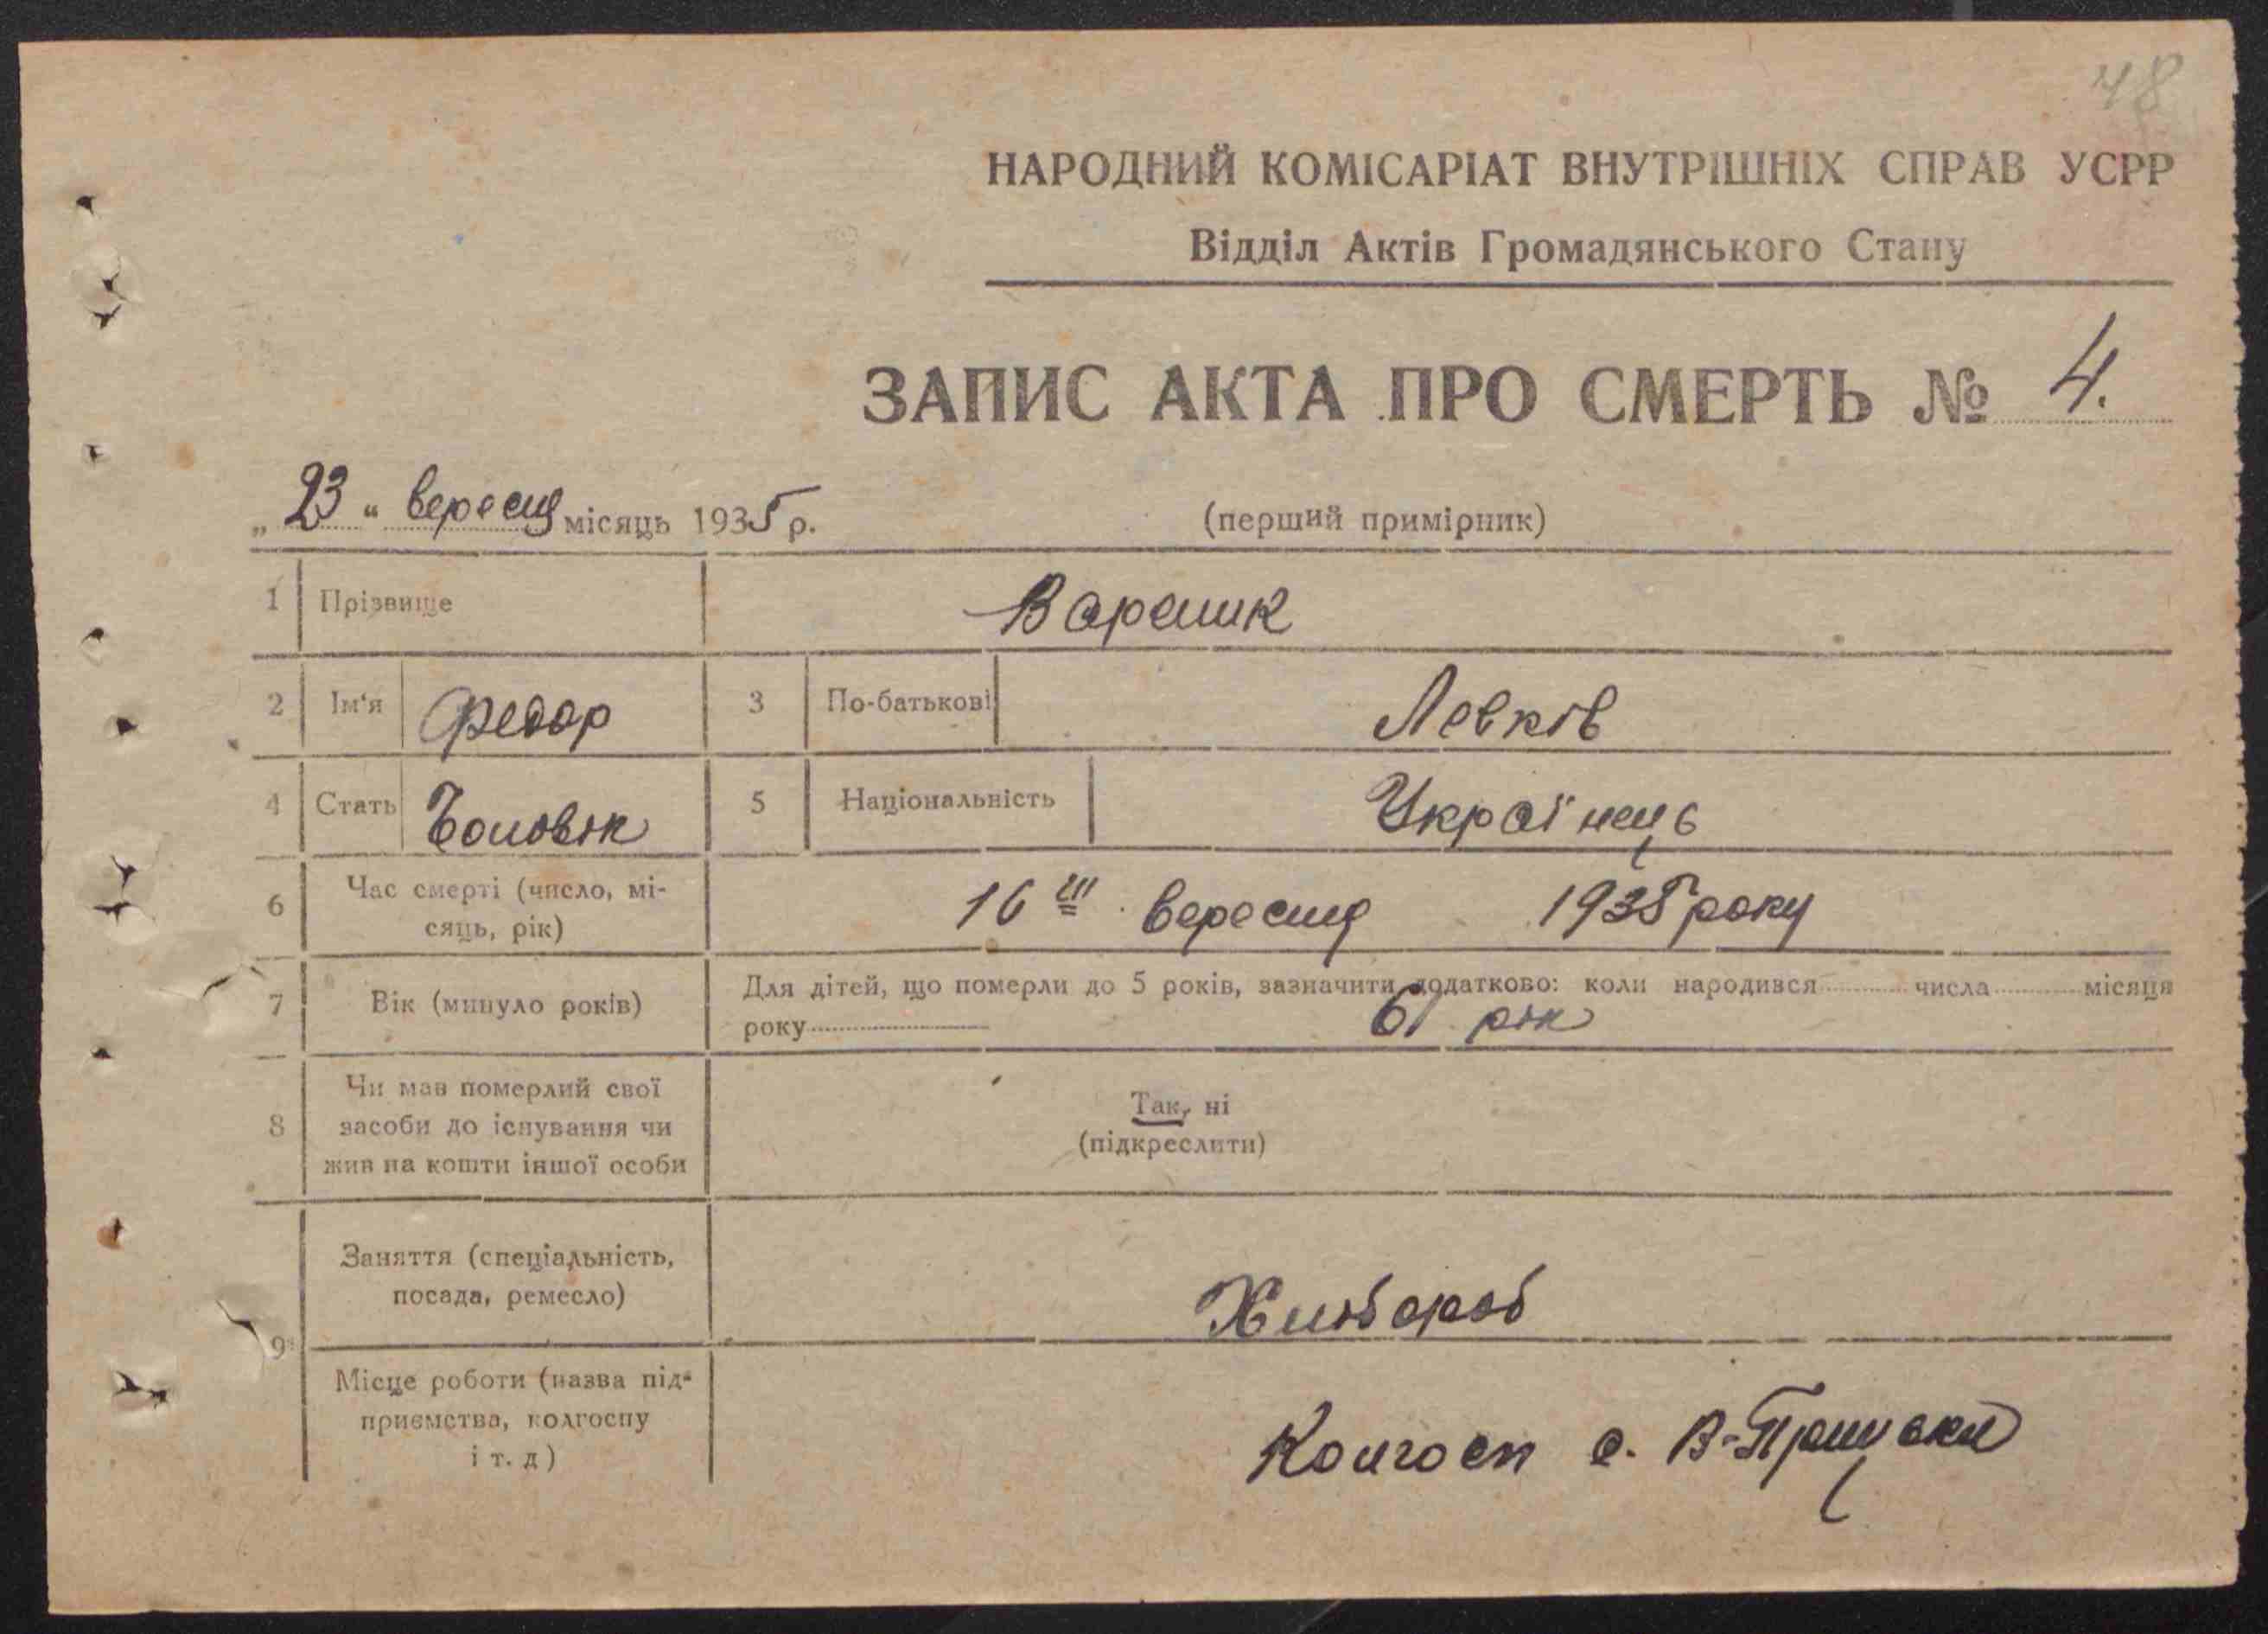 48
НАРОДНИЙ КОМІСАРІАТ ВНУТРІШНІХ СПРАВ УСРР
Відділ Актів Громадянського Стану
ЗАПИС АКТА ПРО СМЕРТЬ № 4.
„23“ вересня місяць 1935 р. (перший примірник)
1 Прізвище
2 Ім'я Федор 3 По-батькові Левків
4 Стать Чоловік 5 Національність Українець
6 Час смерті (число, мі-
сяць, рік) 16го вересня 1935 року
7 Вік (минуло років) Для дітей, що померли до 5 років, зазначити додатково: коли народився числа місяця
року 61 рік
8 Чи мав померлий свої
засоби до існування чи
жив на кошти іншої особи
Так, ні
(підкреслити)
9 Заняття (спеціальність,
посада, ремесло) Хлібороб
Місце роботи (назва під-
приємства, колгоспу
і т. д) Колгосп с. В-Прицьки